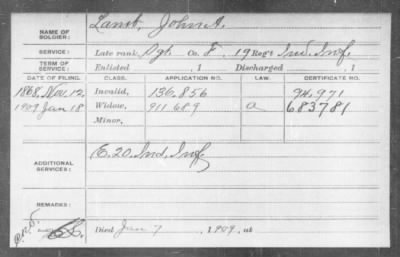 NAME OF SOLDIER: Lamb, John A.
SERVICE: Late rank, Sgt. Co. F, 19 Reg't Ind. Inf.
TERM OF SERVICE: Enlisted , 1 Discharged , 1
DATE OF FILING. CLASS. APPLICATION NO. LAW. CERTIFICATE NO.
1868, Nov. 12. Invalid, 136,856 94,971
1909 Jan 18 Widow, 911,689 a 683781
Minor,
ADDITIONAL SERVICES: E. 20. Ind. Inf.
REMARKS:
Died Jan 7, 1909, at